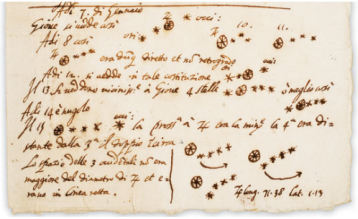 Adi 7. di Gennaio
Giove si vedde così
Adi 8 così
era dunque diretto et non retrogrado
Adi 12. si vedde in tale costituzione
Il 13. si veddono vicinissime a Giove 4 stelle meglio così
Adi 14 è nugolo
Il 15 la prossima a ♃ era la minore la 4ª era di-
stante dalla 3ª il doppio in circa
Lo spazio delle 3 occidentali non era
maggiore del diametro di ♃ et e-
rano in linea retta.
♃ long. 71.38 Lat. 1.13